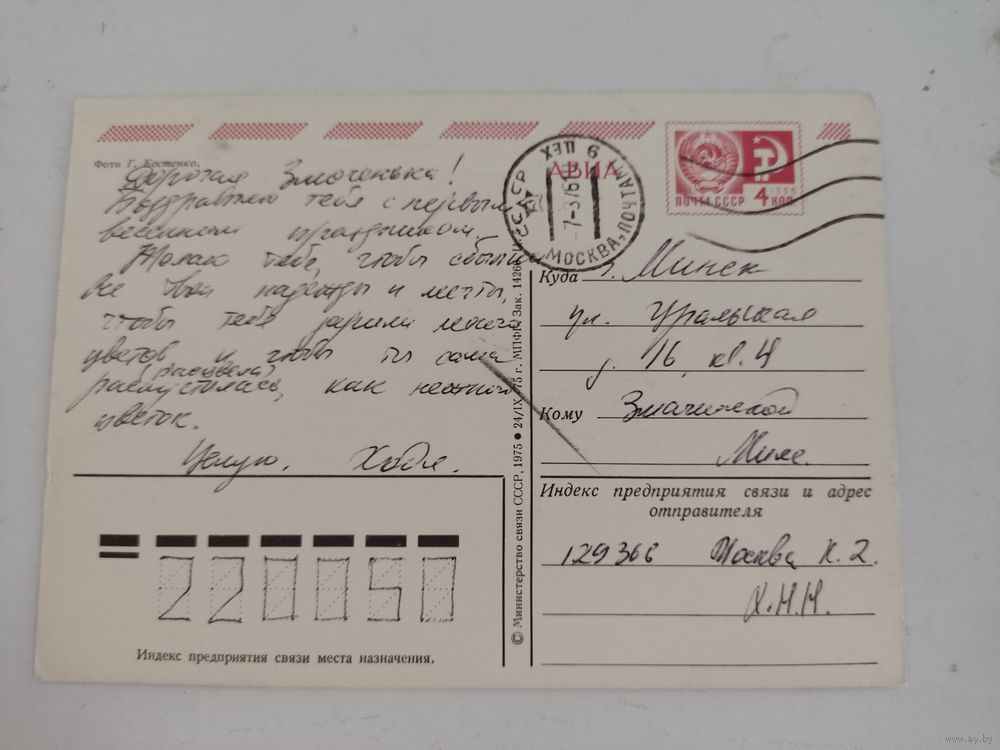 Фото Г. Костенко.
Дорогая Змоченька!
Поздравляю тебя с первым
весенним праздником.
Желаю тебе, чтобы сбылись
все твои надежды и мечты,
чтобы тебе дарили много
цветов и чтобы ты сама
(расцвела)
распустилась, как нежный
цветок.
Целую. Ходя.
АВИА
ПОЧТА СССР
4 КОП
1966
МОСКВА, ПОЧТАМТ
9 ЦЕХ
СССР
Куда г. Минск
ул. Уральская
д. 16, кв. 4
Кому Змачинской
Миле.
Индекс предприятия связи и адрес
отправителя
129366 Москва К. 2.
Х.М.Н.
© Министерство связи СССР, 1975 ● 24/IX-75 г. МПФГ. Зак.
220050
Индекс предприятия связи места назначения.
www.ay.by